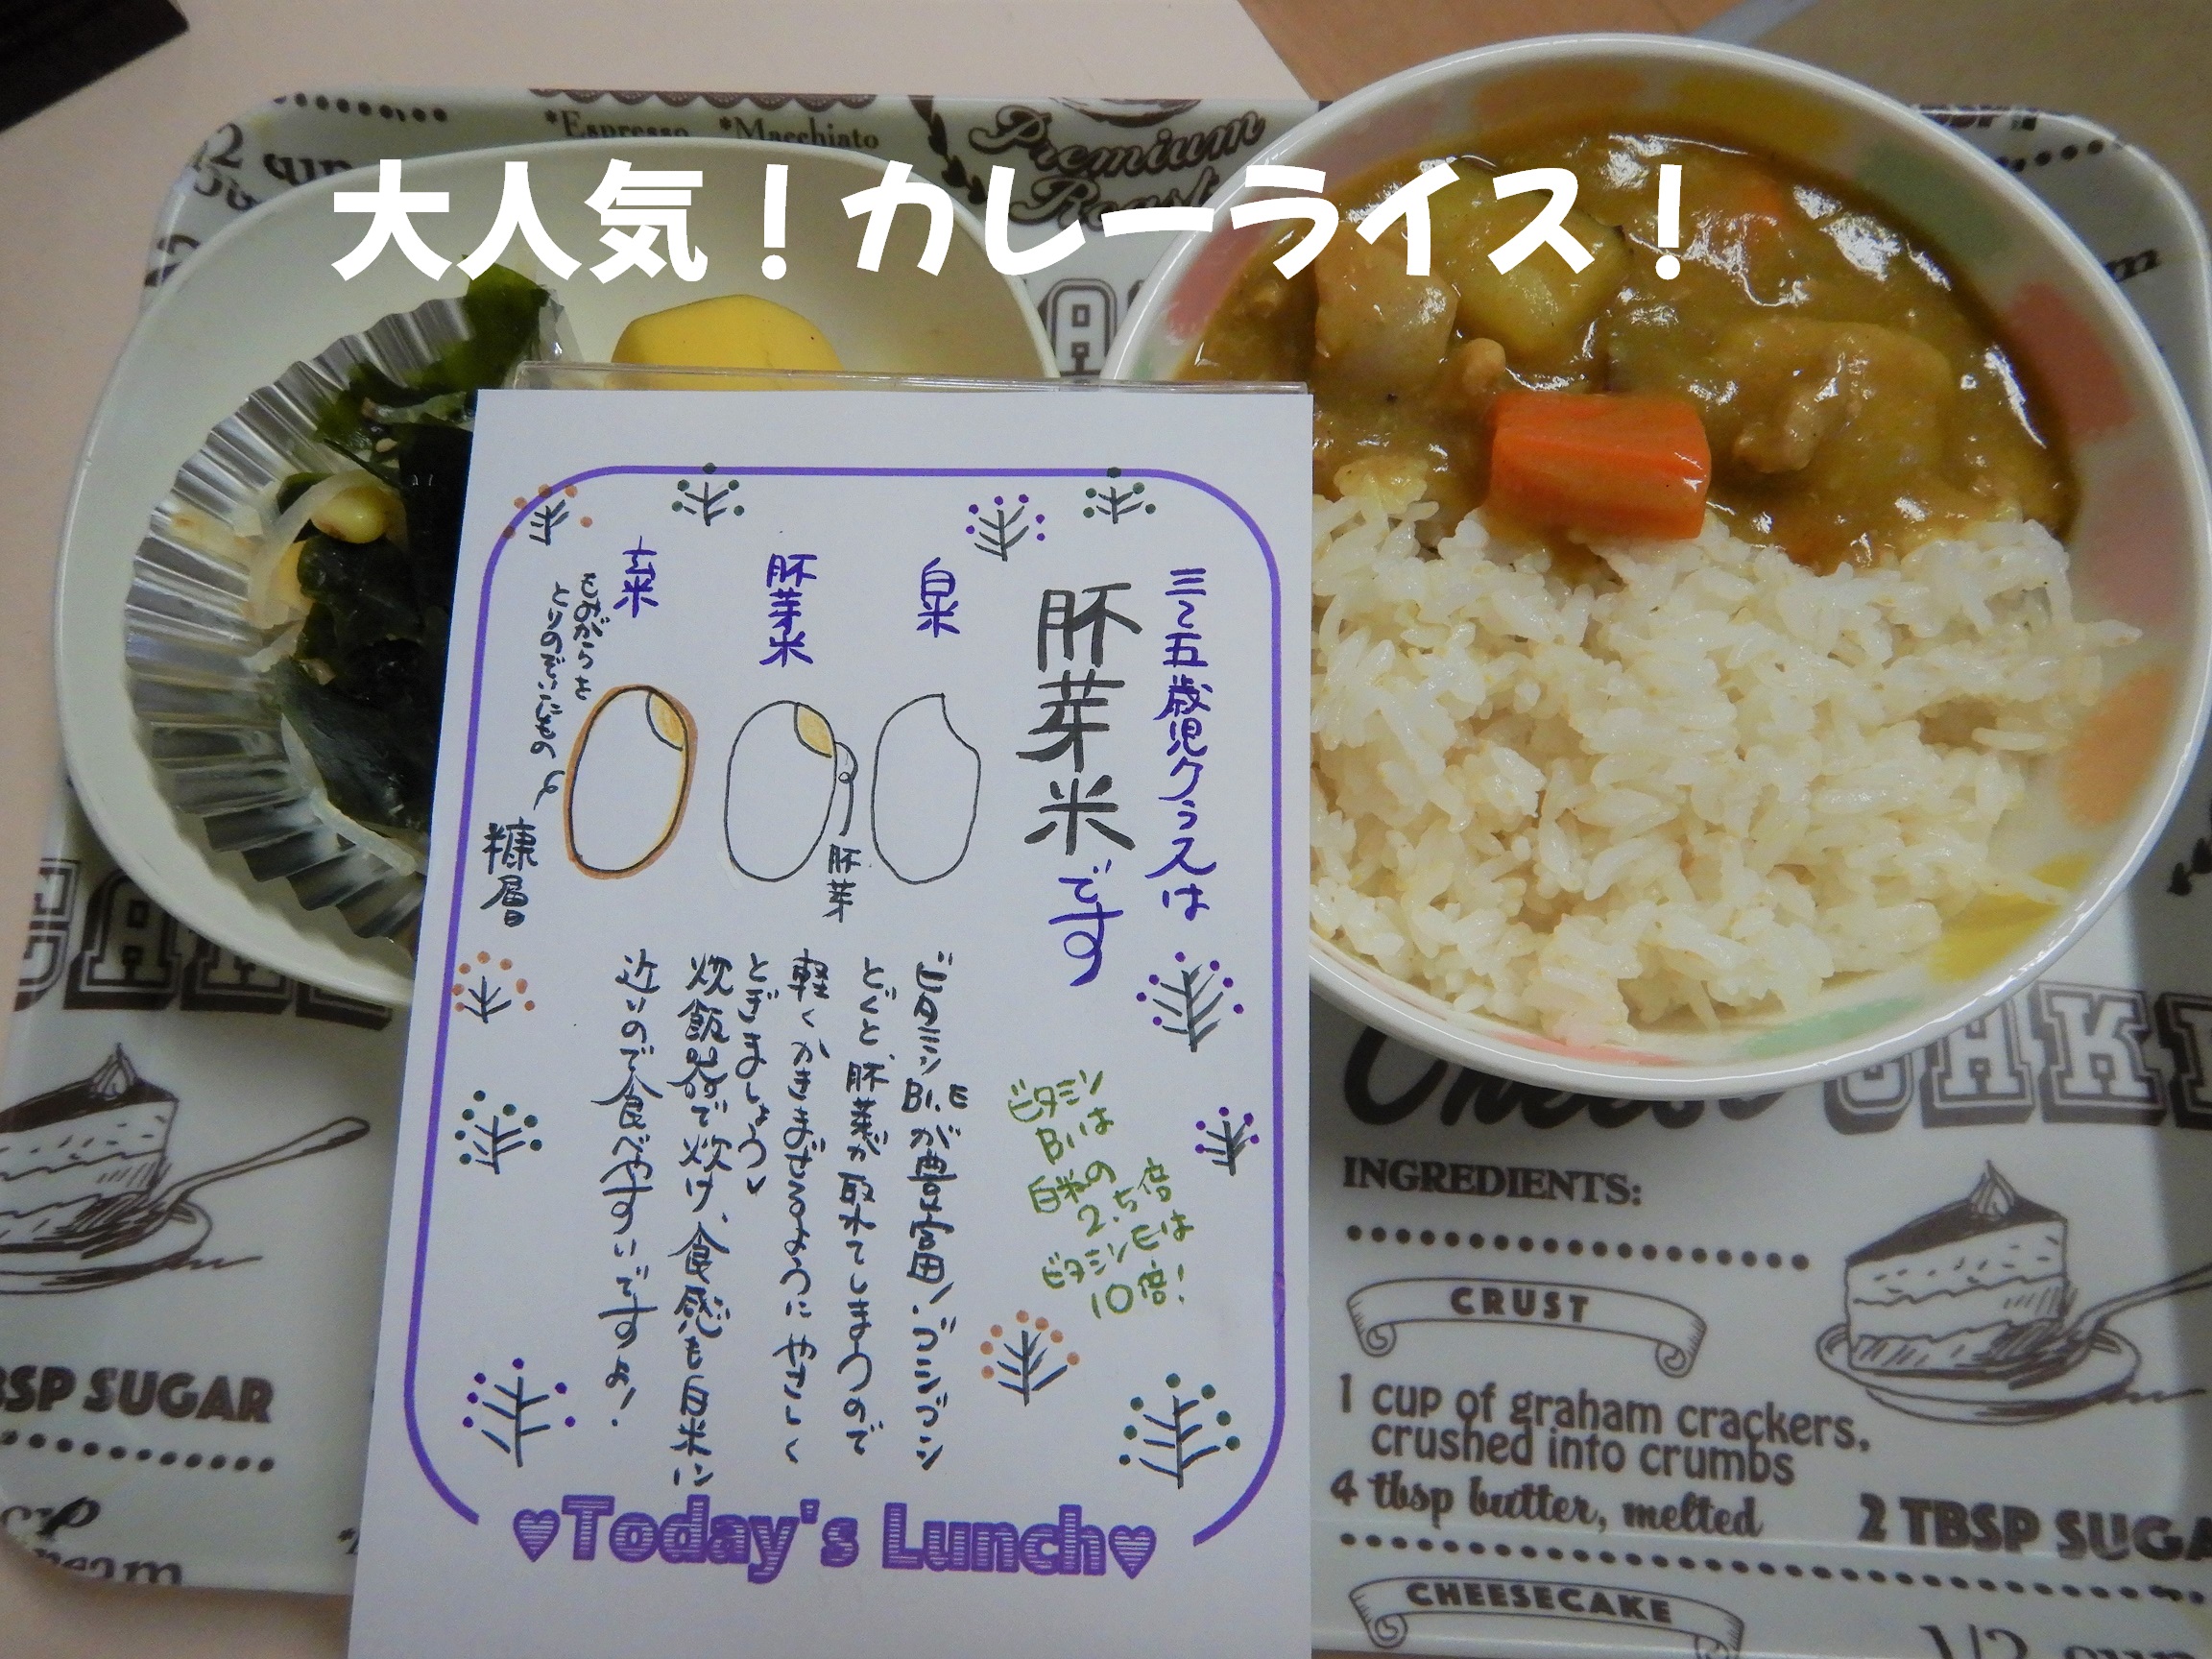 大人気！カレーライス！
*Espresso *Macchiato
Premium
Roast
三〜五歳児クラスは
胚芽米です
白米
胚芽米
胚芽
玄米
もみがらを
とりのぞいたもの
糠層
ビタミン
B₁は
白米の
2.5倍
ビタミンEは
10倍!
ビタミンB₁、Eが豊富！ゴシゴシ
とぐと、胚芽が取れてしまうので
軽くかきまぜるようにやさしく
とぎましょう。
炊飯器で炊け、食感も白米に
近いので食べやすいですよ！
♥Today's Lunch♥
INGREDIENTS:
CRUST
1 cup of graham crackers,
crushed into crumbs
4 tbsp butter, melted
2 TBSP SUGA
CHEESECAKE
BSP SUGAR